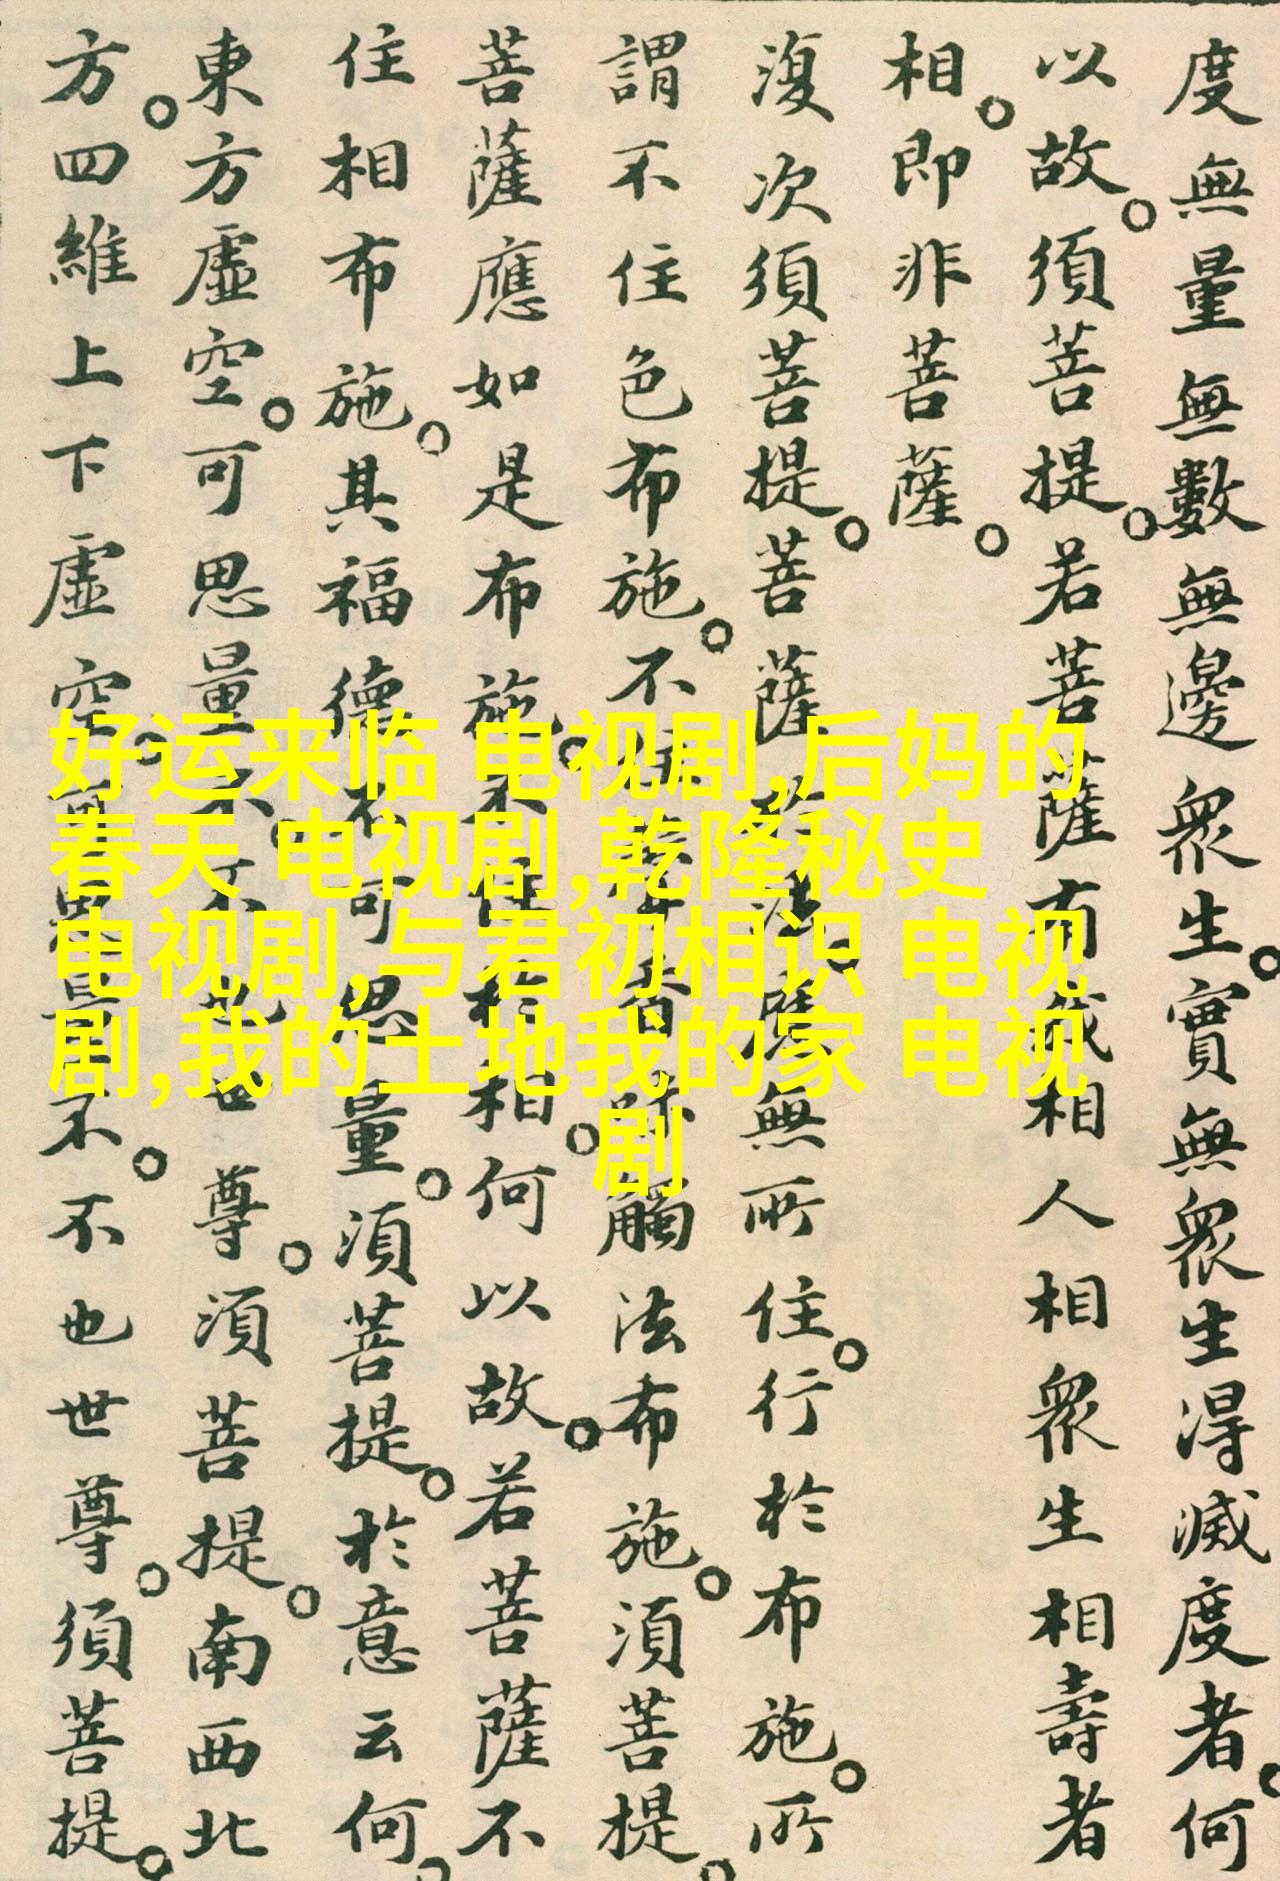 度無量無數無邊眾生。實無眾生得滅度者。何
以故。須菩提。若菩薩有我相人相眾生相壽者
相。即非菩薩。
復次須菩提。菩薩於法。應無所住。行於布施。所
謂不住色布施。不住聲香味觸法布施。須菩提。
菩薩應如是布施。不住於相。何以故。若菩薩不
住相布施。其福德不可思量。須菩提。於意云何。
東方虛空。可思量不。不也世尊。須菩提。南西北
方。四維上下虛空。可思量不。不也世尊。須菩提。
好运来临 电视剧,后妈的
春天 电视剧,乾隆秘史
电视剧,与君初相识 电视
剧,我的土地我的家 电视
剧